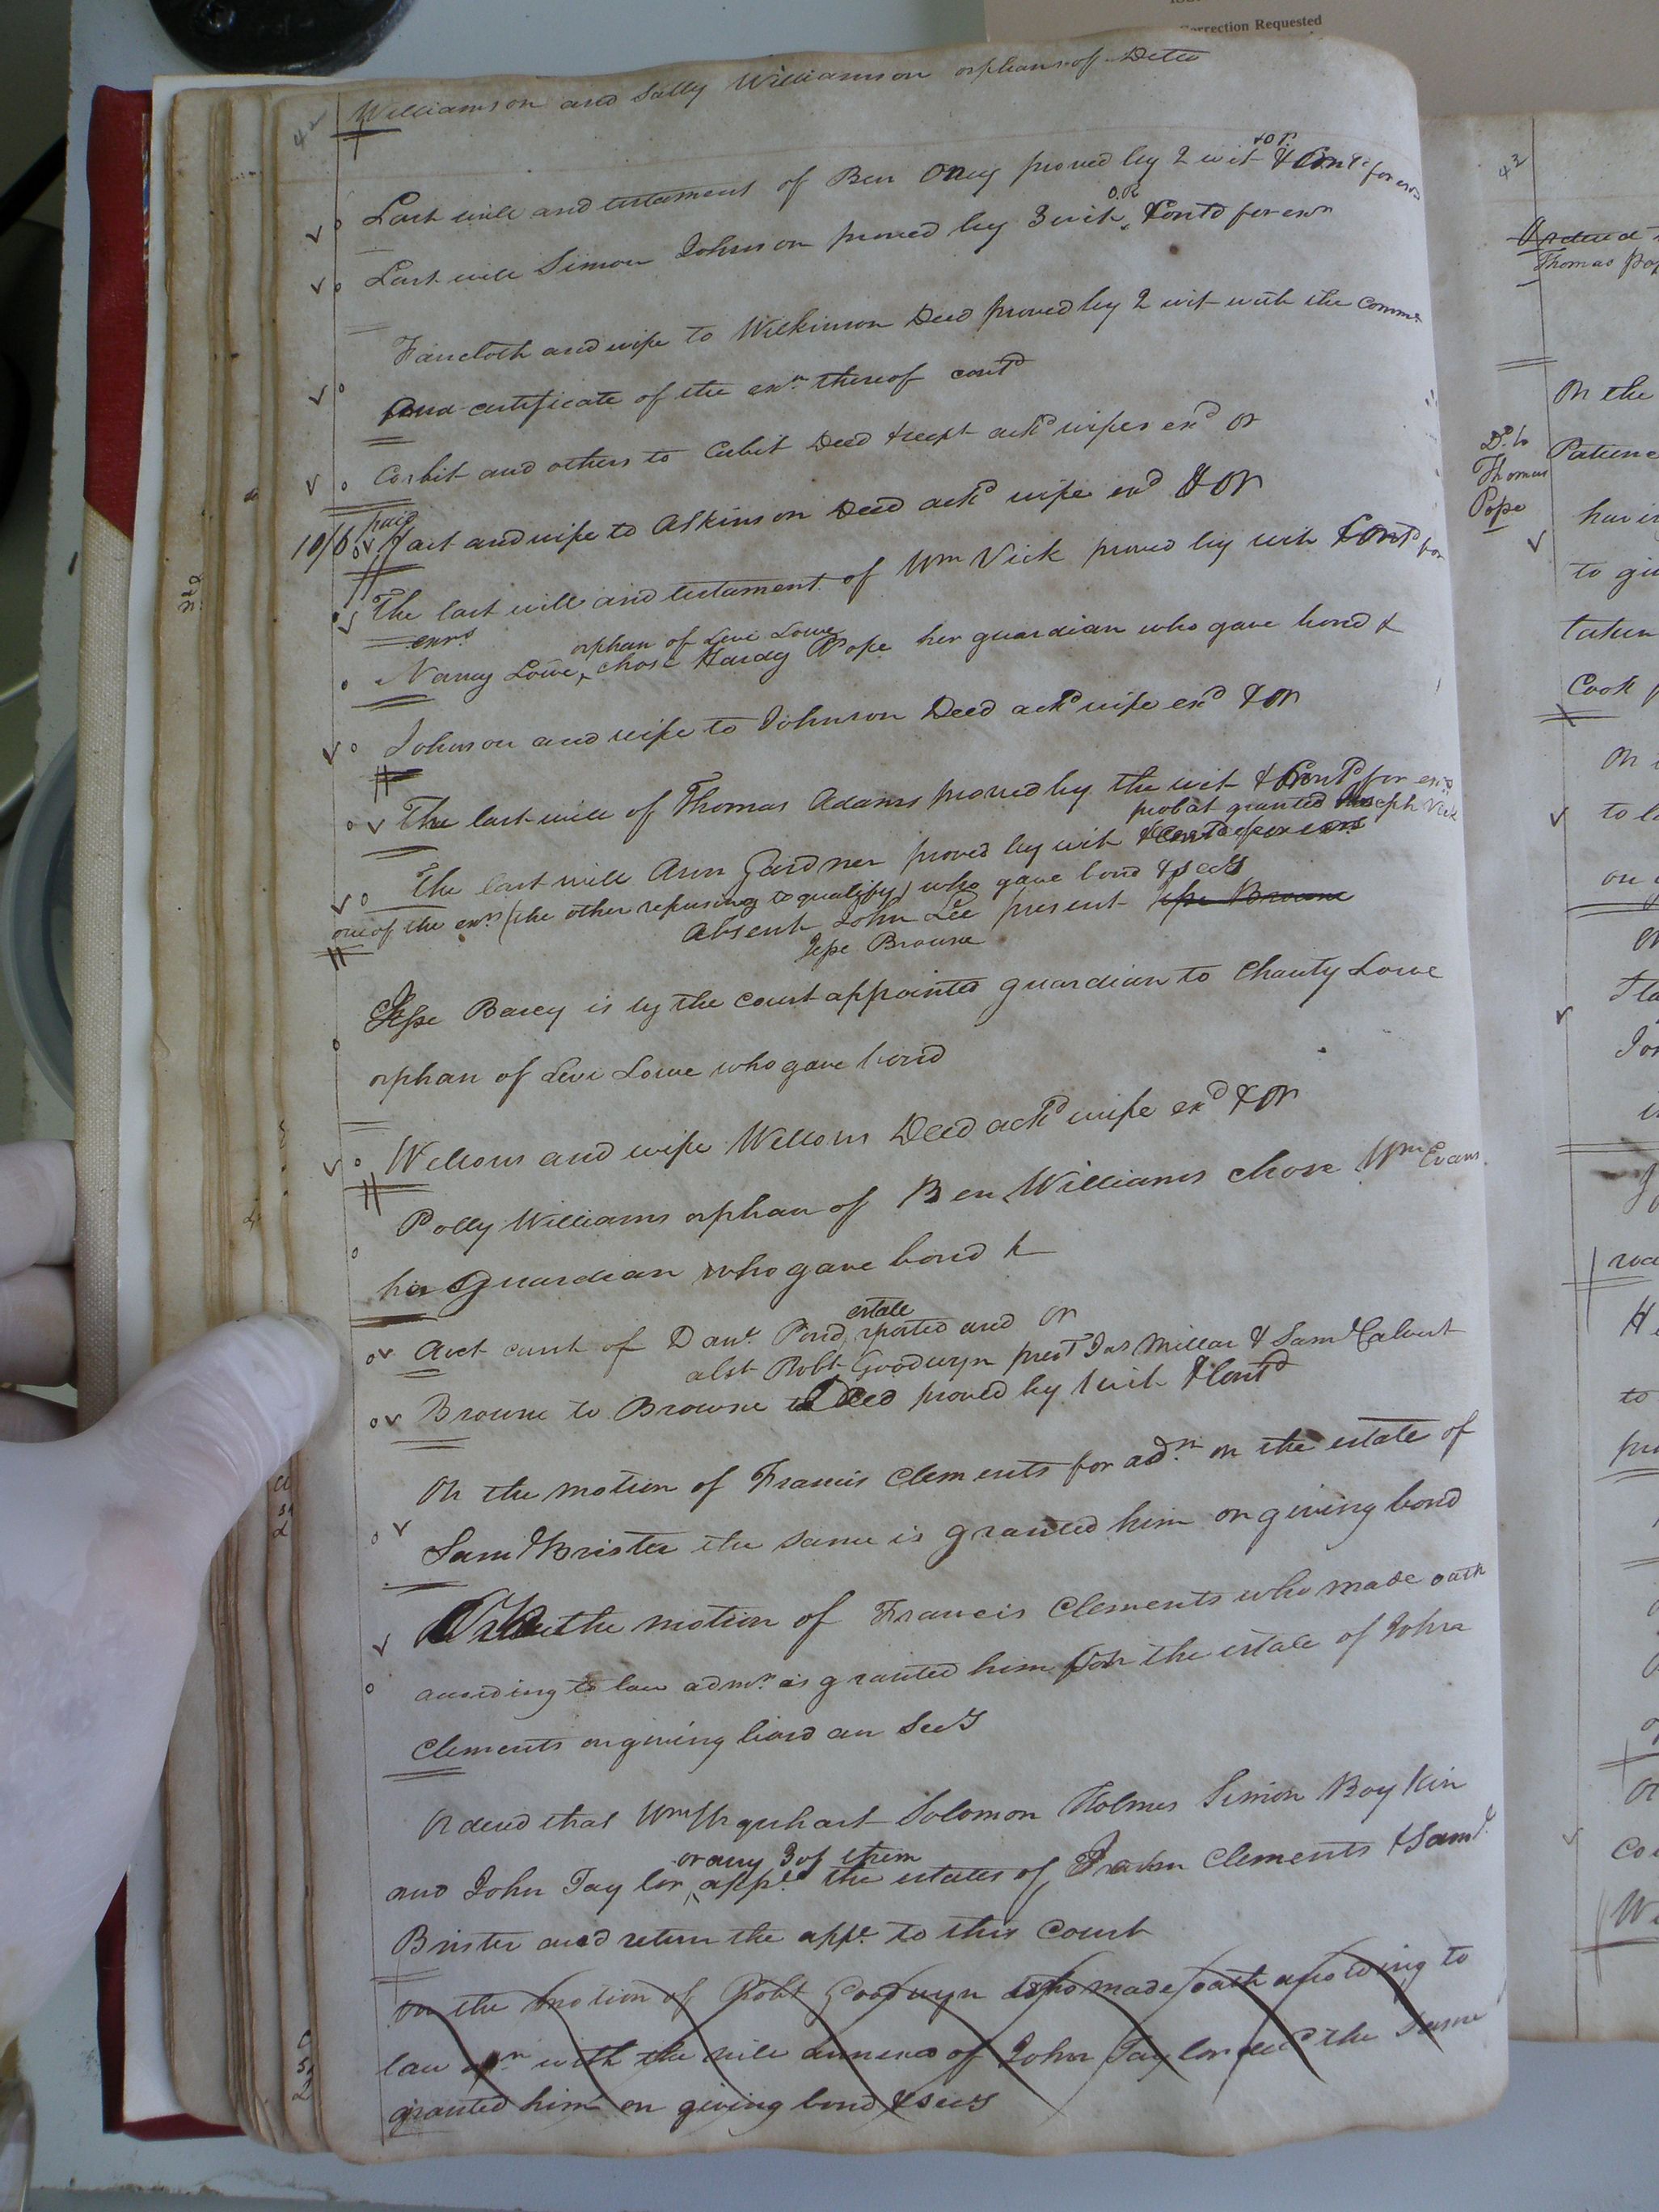 Correction Requested
42
Williamson and Sally Williamson orphans of Ditto
Last will and testament of Ben Oney proved by 2 wit & OR & Cont.d for
Last will Simon Johnson proved by 3 wit. O.R & Cont'd for exn
Faircloth and wife to Wilkinson Deed proved by 2 wit with the Comm.n
and certificate of the exn. thereof cont'd
Corbit and others to Corbit Deed & recpt ack'd wifes ex'd OR
10/6 paid
Hart and wife to Atkinson Deed ack'd wife ex'd & OR
The last will and testament of Wm Vick proved by wit & Cont'd for
exrs
orphan of Levi Lowe
Nancy Lowe, chose Hardy Pope her guardian who gave bond &
Johnson and wife to Johnson Deed ack'd wife ex'd & OR
The last will of Thomas Adams proved by the wit & Cont'd for exrs
probat granted Joseph Vick
The last will Ann Gardner proved by wit & Cont'd for exrs
one of the exrs (the other refusing to qualify) who gave bond & secy
Absent John Lee present Jesse Browne
Jesse Browne
Jesse Barey is by the court appointed guardian to Charity Lowe
orphan of Levi Lowe who gave bond
Wellons and wife Wellons Deed ack'd wife ex'd & OR
Polly Williams orphan of Ben Williams chose Wm Evans
her Guardian who gave bond &
estate
Acct curt of Danl. Pond, reported and OR
abst Robt Goodwyn prest Jas Millar & Saml Calvert
Browne to Browne Deed proved by 1 wit & Cont'd
On the motion of Francis Clements for adn. on the estate of
Saml Brister the same is granted him on giving bond
On the motion of Francis Clements who made oath
according to law admn. is granted him on the estate of John
Clements on giving bond an Secy
Ordered that Wm Urquhart Solomon Holmes Simon Boykin
or any 3 of them
and John Taylor, appe. the estates of John Clements & Saml.
Brister and return the appt. to this Court
On the motion of Robt Goodwyn who made oath according to
law with the will annexed of John Taylor dec'd the same
granted him on giving bond & secy
42
Ordered
Thomas Pope
On the
Do. to
Thomas
Pope
Patience
having
to
taken
Cook
on
to